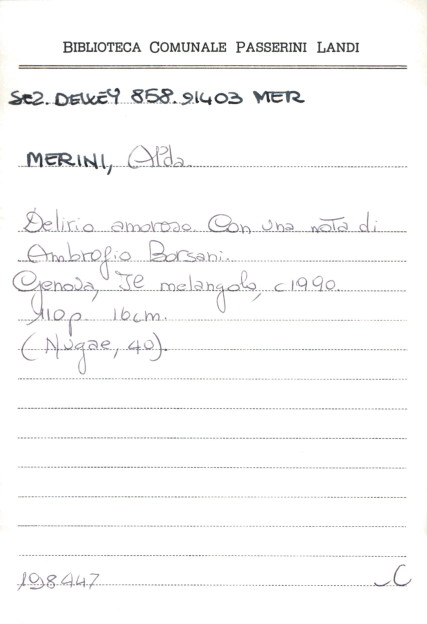 BIBLIOTECA COMUNALE PASSERINI LANDI
SEZ. DEWEY 858.91403 MER
MERINI, Alda
Delirio amoroso. Con una nota di
Ambrogio Borsani.
Genova, Il melangolo, c1990.
110 p. 16 cm.
(Nugae, 40).
198447
C